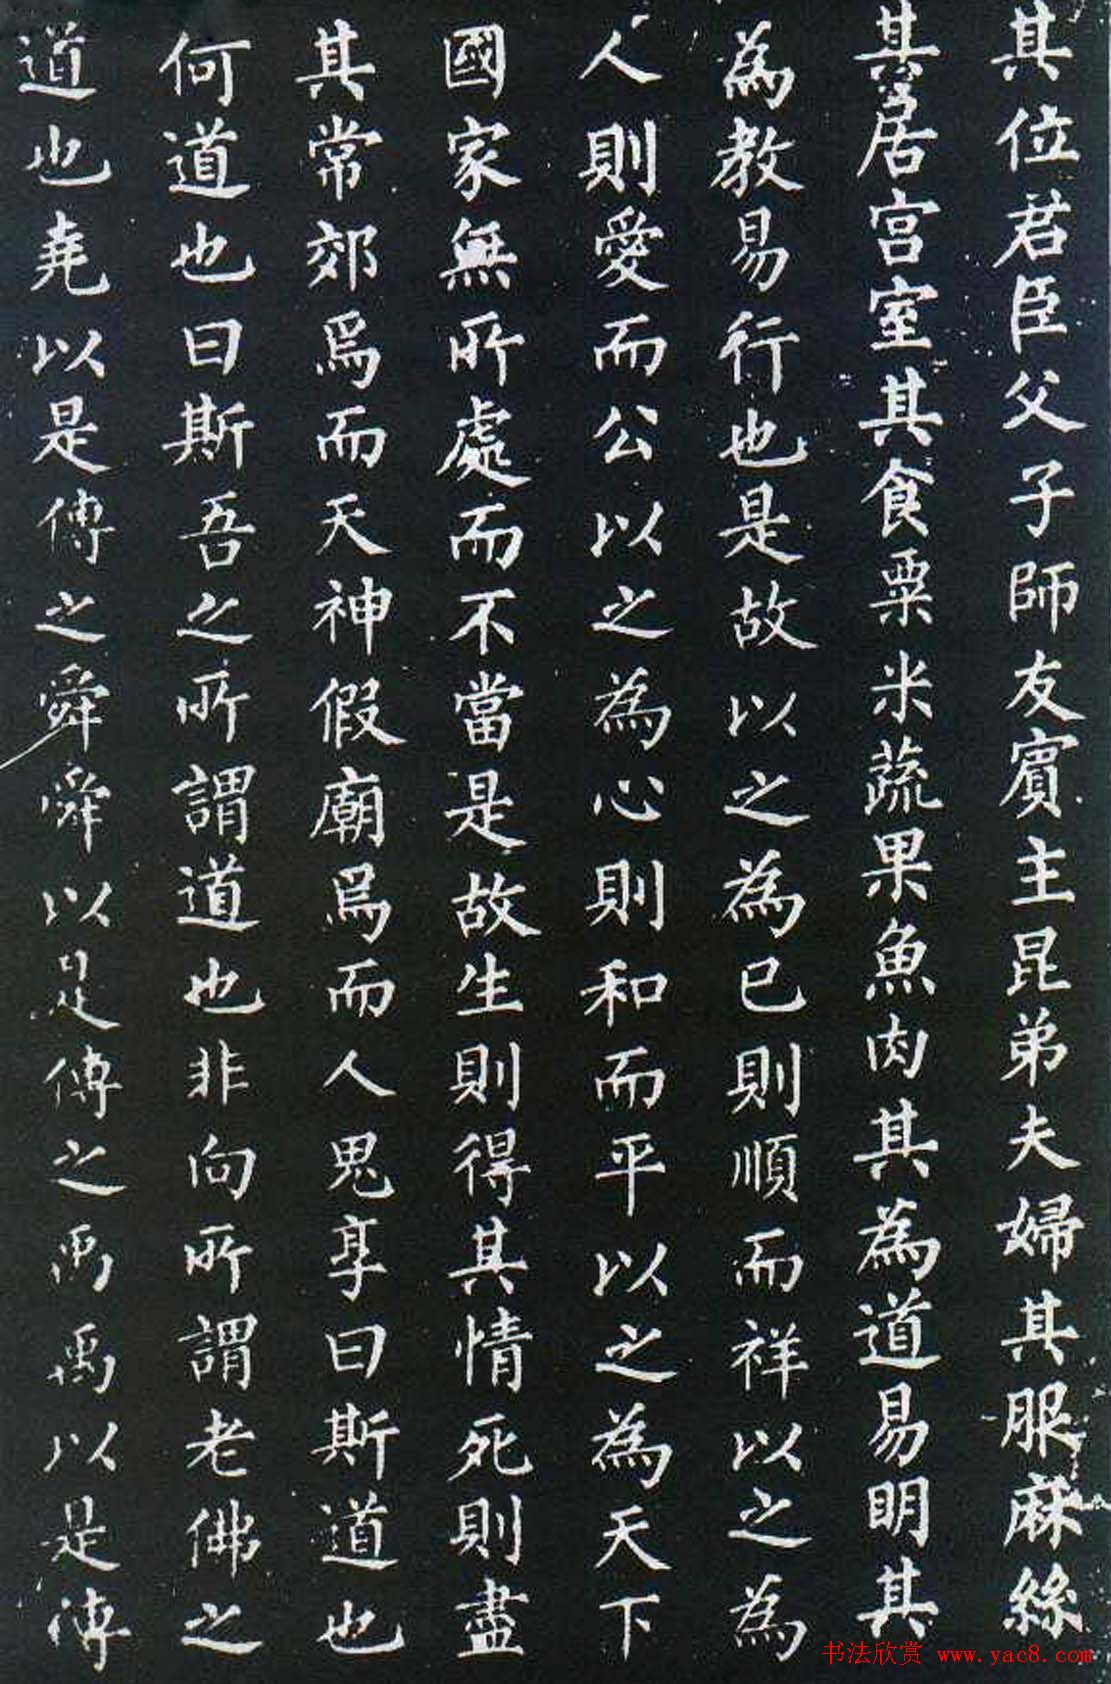 其位君臣父子師友賓主昆弟夫婦其服麻絲
其居宮室其食粟米蔬果魚肉其為道易明其
為教易行也是故以之為己則順而祥以之為
人則愛而公以之為心則和而平以之為天下
國家無所處而不當是故生則得其情死則盡
其常郊焉而天神假廟焉而人鬼享曰斯道也
何道也曰斯吾之所謂道也非向所謂老佛之
道也堯以是傳之舜舜以是傳之禹禹以是傳
书法欣赏 www.yac8.com